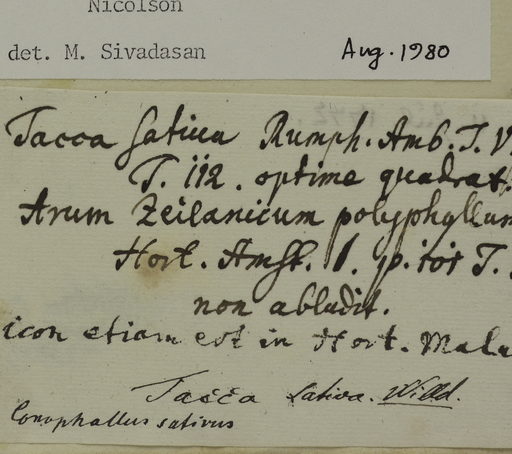 Nicolson
det. M. Sivadasan Aug. 1980
Tacca sativa Rumph. Amb. T. V.
T. 112. optime quadrat.
Arum Zeilanicum polyphyllum
Hort. Amst. 1. p. 101 T.
non abludit.
icon etiam est in Hort. Mala
Tacca sativa. Willd.
Conophallus sativus